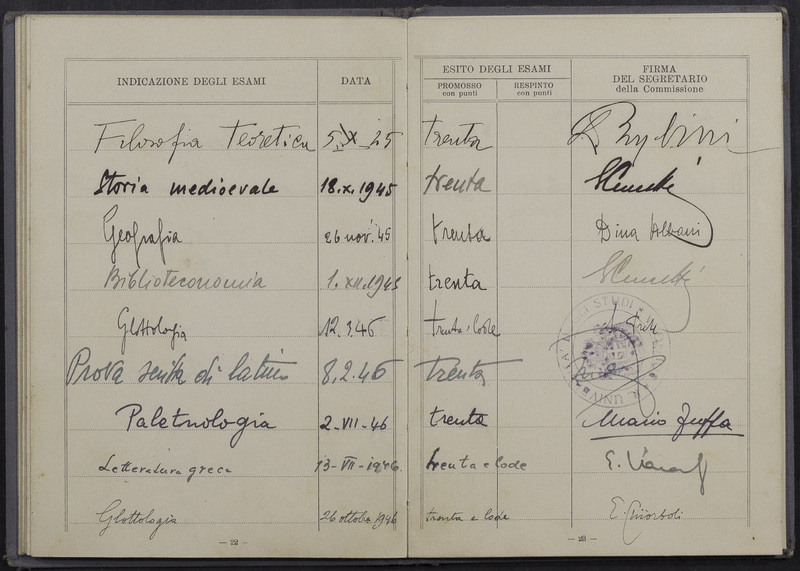 INDICAZIONE DEGLI ESAMI DATA ESITO DEGLI ESAMI FIRMA
DEL SEGRETARIO
della Commissione
PROMOSSO
con punti
RESPINTO
con punti
Filosofia Teoretica 5 X 45 trenta
Storia medioevale 18.X.1945 trenta
Geografia 26 nov. 45 trenta Dina Albani
Biblioteconomia 1.XII.1945 trenta
Glottologia 12.3.46 trenta e lode
Prova scritta di latino 8.2.46 trenta
Paletnologia 2-VII-46 trenta Mario Zuffa
Letteratura greca 13-VII-1946 trenta e lode
Glottologia 26 ottobre 1946 trenta e lode
STUDI
UNIV
— 22 —
— 23 —